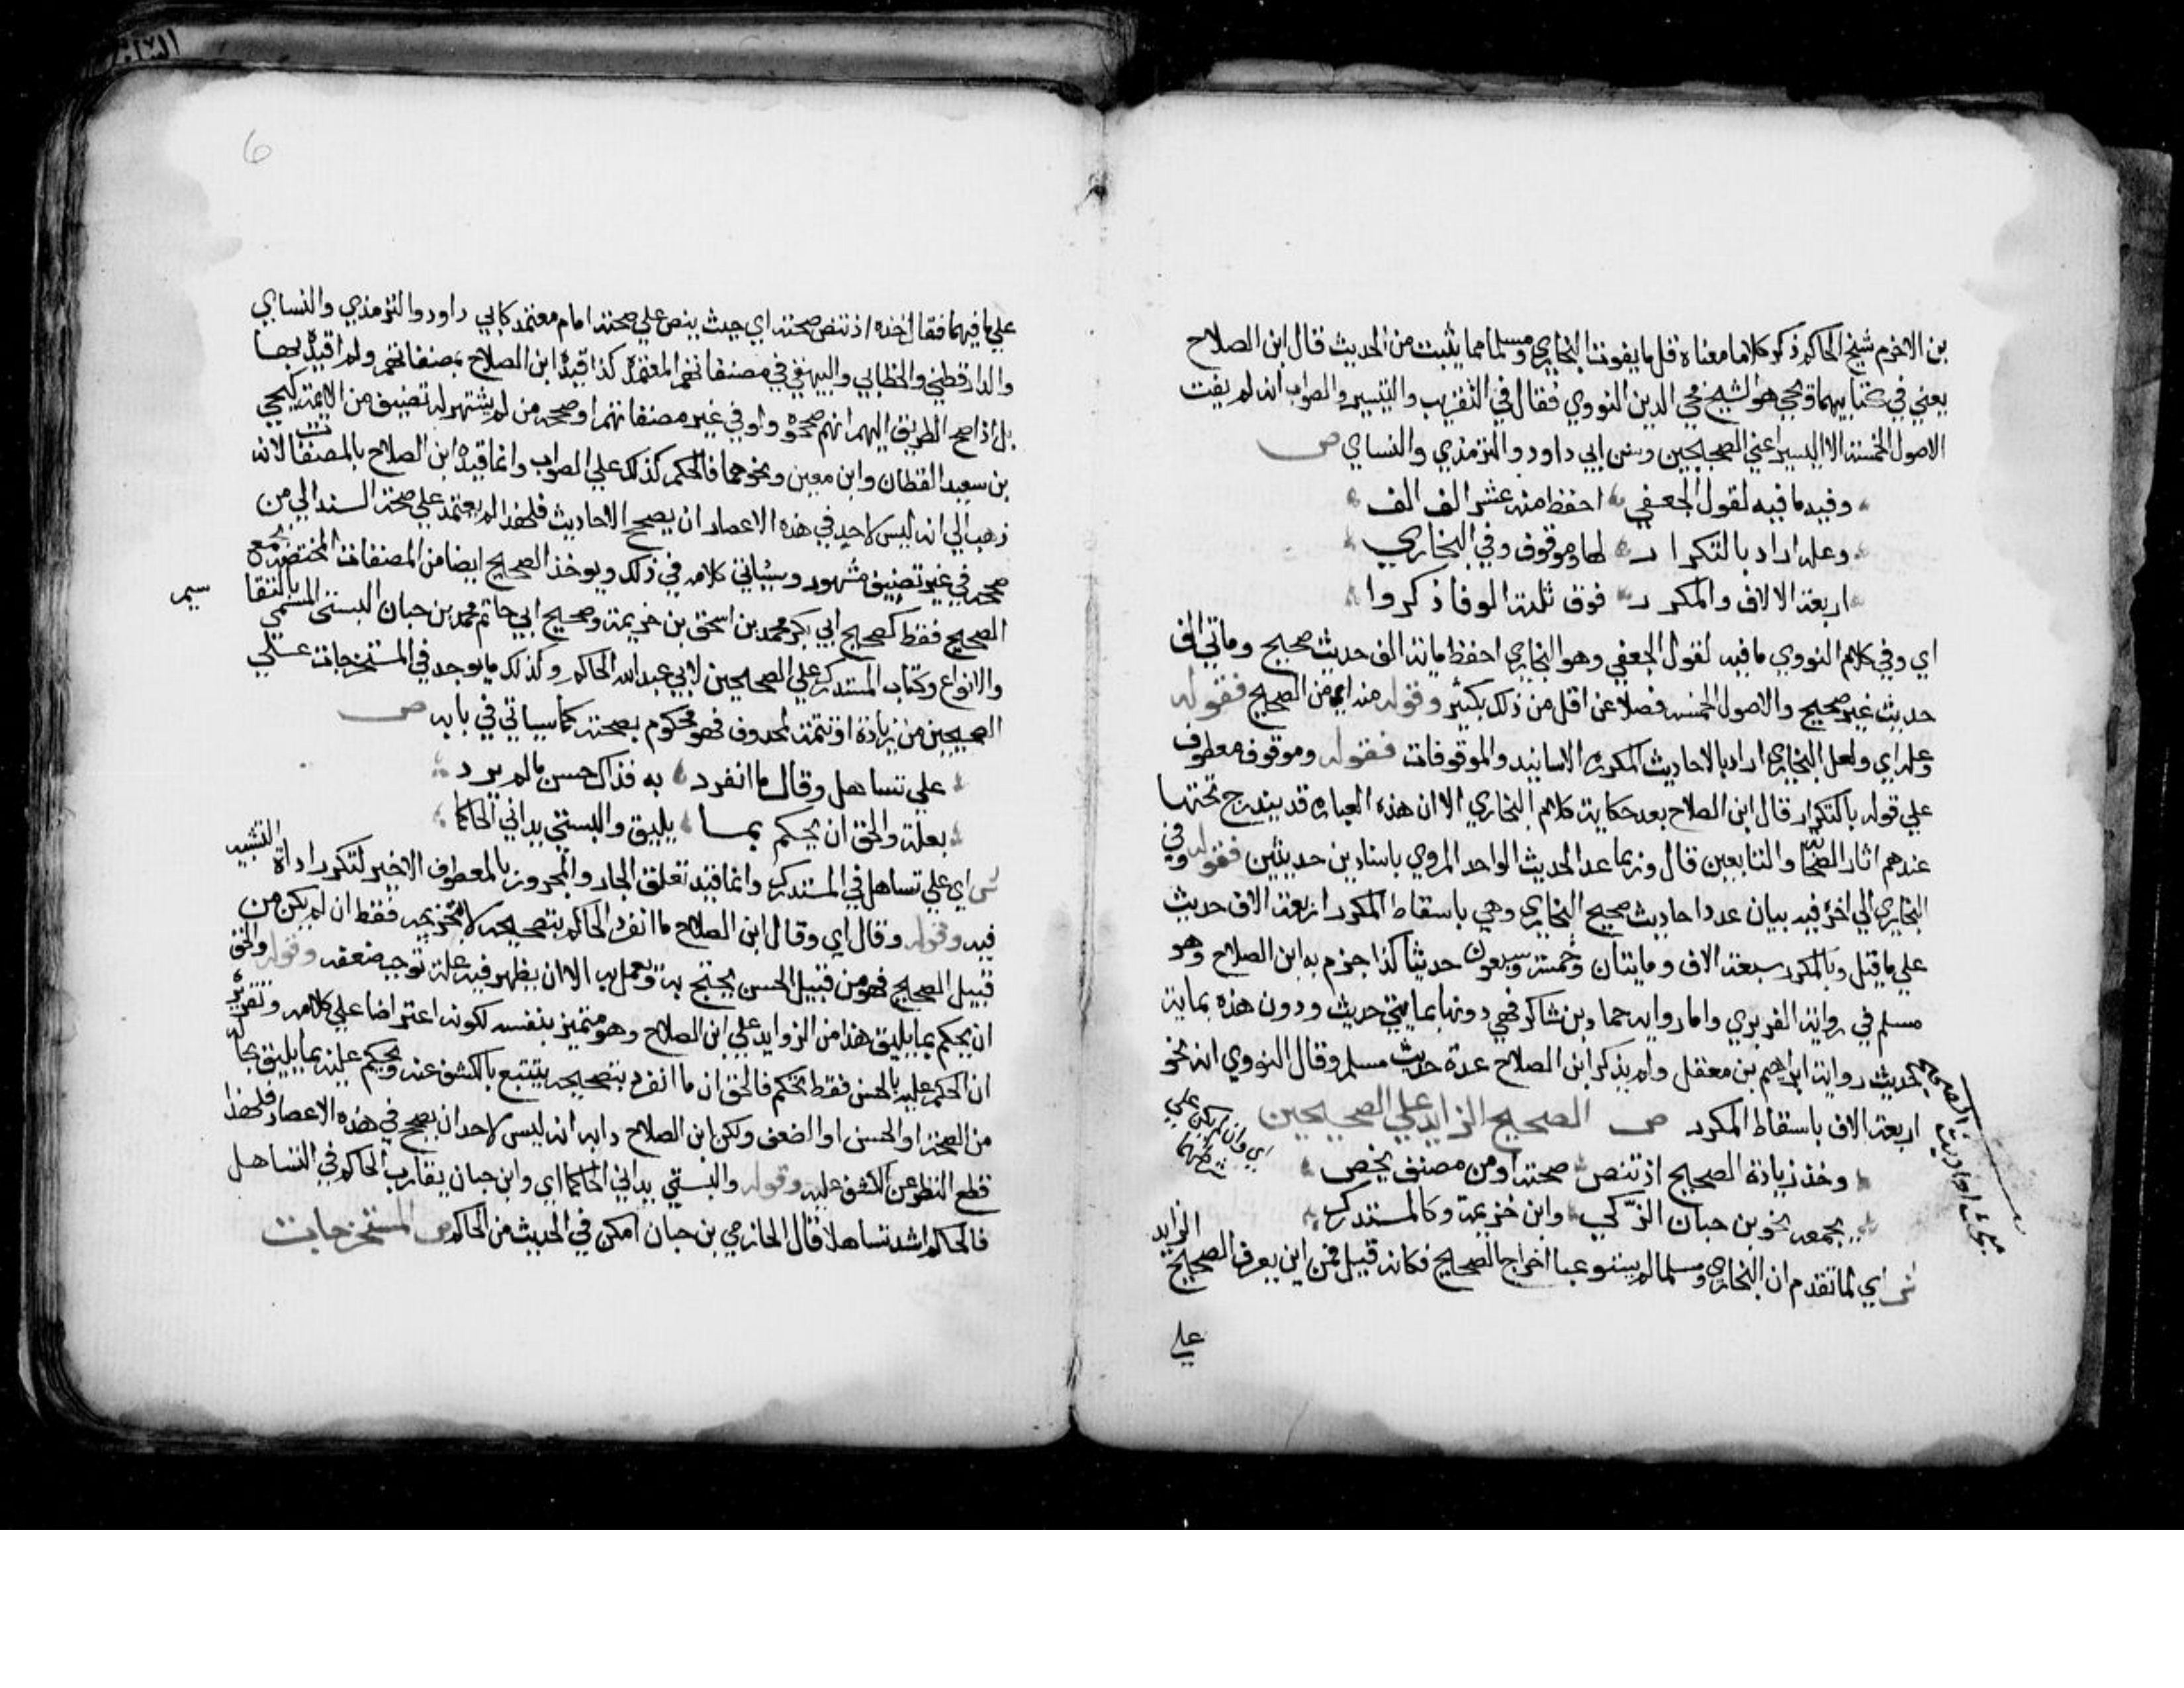 بن الاخرم شيخ الحاكم ذكر كلاما معناه قل ما يفوت البخاري ومسلما مما يثبت من الحديث قال ابن الصلاح
يعني في كتابيهما ويحيى هو الشيخ محي الدين النووي فقال في التقريب والتيسير والصواب انه لم يفت
الاصول الخمسة الا اليسير اعني الصحيحين وسنن ابي داود والترمذي والنساي ص
وفيه ما فيه لقول الجعفي احفظ منه عشر الف الف
وعله اراد بالتكرار لها وموقوف وفي البخاري
اربعة الالاف والمكرر فوق ثلثة الوفا ذكروا
اي وفي كلام النووي ما فيه لقول الجعفي وهو البخاري احفظ ماية الف حديث صحيح وماتي الف
حديث غير صحيح والاصول الخمسة فضلا عن اقل من ذلك بكثير وقوله منه اي من الصحيح فقوله
وعله اي ولعل البخاري اراد بالاحاديث المكررة الاسانيد والموقوفات فقوله وموقوف معطوف
علي قوله بالتكرار قال ابن الصلاح بعد حكاية كلام البخاري الا ان هذه العبارة قد يندرج تحتها
عندهم اثار الصحابة والتابعين قال وربما عد الحديث الواحد المروي باسنادين حديثين فقوله وفي
البخاري الي اخره فيه بيان عدد احاديث صحيح البخاري وهي باسقاط المكرر اربعة الاف حديث
علي ما قيل وبالمكرر سبعة الاف ومايتان وخمسة وسبعون حديثا كذا جزم به ابن الصلاح وهو
مسلم في رواية الفربري واما رواية حماد بن شاكر فهي دونها بمايتي حديث ودون هذه بماية
حديث رواية ابراهيم بن معقل ولم يذكر ابن الصلاح عدة حديث مسلم وقال النووي انه نحو
اربعة الاف باسقاط المكرر ص الصحيح الزايد علي الصحيحين
اي وان لم يكن علي
شرطهما
وخذ زيادة الصحيح اذ تنص صحته او من مصنف يخص
بجمعه نحو بن حبان الزكي وابن خزيمة وكالمستدرك
ش اي لما تقدم ان البخاري ومسلما لم يستوعبا اخراج الصحيح فكانه قيل فمن اين يعرف الصحيح الزايد
علي
علي ما فيهما فقال خذه اذ تنص صحته اي حيث ينص علي صحته امام معتمد كابي داود والترمذي والنساي
والدارقطني والخطابي والبيهقي في مصنفاتهم المعتمدة كذا قيده ابن الصلاح بمصنفاتهم ولم اقيده بها
بل اذا صح الطريق اليهم انهم صححوه ولو في غير مصنفاتهم او صححه من لم يشتهر له تصنيف من الايمة كيحي
بن سعيد القطان وابن معين ونحوهما فالحكم كذلك علي الصواب وانما قيده ابن الصلاح بالمصنفات لانه
ذهب الي انه ليس لاحد في هذه الاعصار ان يصحح الاحاديث فلهذا لم يعتمد علي صحة السند الي من
صححه في غير تصنيف مشهور وسياتي كلامه في ذلك ويوخذ الصحيح ايضا من المصنفات المختصة بجمع
الصحيح فقط كصحيح ابي بكر محمد بن اسحق بن خزيمة وصحيح ابي حاتم محمد بن حبان البستي المسمي بالتقا سيم
والانواع وكتاب المستدرك علي الصحيحين لابي عبد الله الحاكم وكذلك ما يوجد في المستخرجات علي
الصحيحين من زيادة او تتمة لمحذوف فهو محكوم بصحته كما سياتي في بابه ص
علي تساهل وقال ما انفرد به فذاك حسن ما لم يرد
بعلة والحق ان يحكم بما يليق والبستي يداني الحاكما
ش اي علي تساهل في المستدرك وانما قيد تعلق الجار والمجرور بالمعطوف الاخير لتكرر اداة التشبيه
فيه وقوله وقال اي وقال ابن الصلاح ما انفرد الحاكم بتصحيحه لا بتخريجه فقط ان لم يكن من
قبيل الصحيح فهو من قبيل الحسن يحتج به ويعمل به الا ان يظهر فيه علة توجب ضعفه وقوله والحق
ان يحكم بما يليق هذا من الزوايد علي ابن الصلاح وهو متميز بنفسه لكونه اعتراضا علي كلامه وتقريره
ان الحكم عليه بالحسن فقط تحكم فالحق ان ما انفرد بتصحيحه يتتبع بالكشف عنه ويحكم عليه بما يليق بحاله
من الصحة او الحسن او الضعف ولكن ابن الصلاح رايه انه ليس لاحد ان يصحح في هذه الاعصار فلهذا
قطع النظر عن الكشف عليه وقوله والبستي يداني الحاكما اي وابن حبان يقارب الحاكم في التساهل
فالحاكم اشد تساهلا قال الحازمي بن حبان امكن في الحديث من الحاكم ص المستخرجات
6